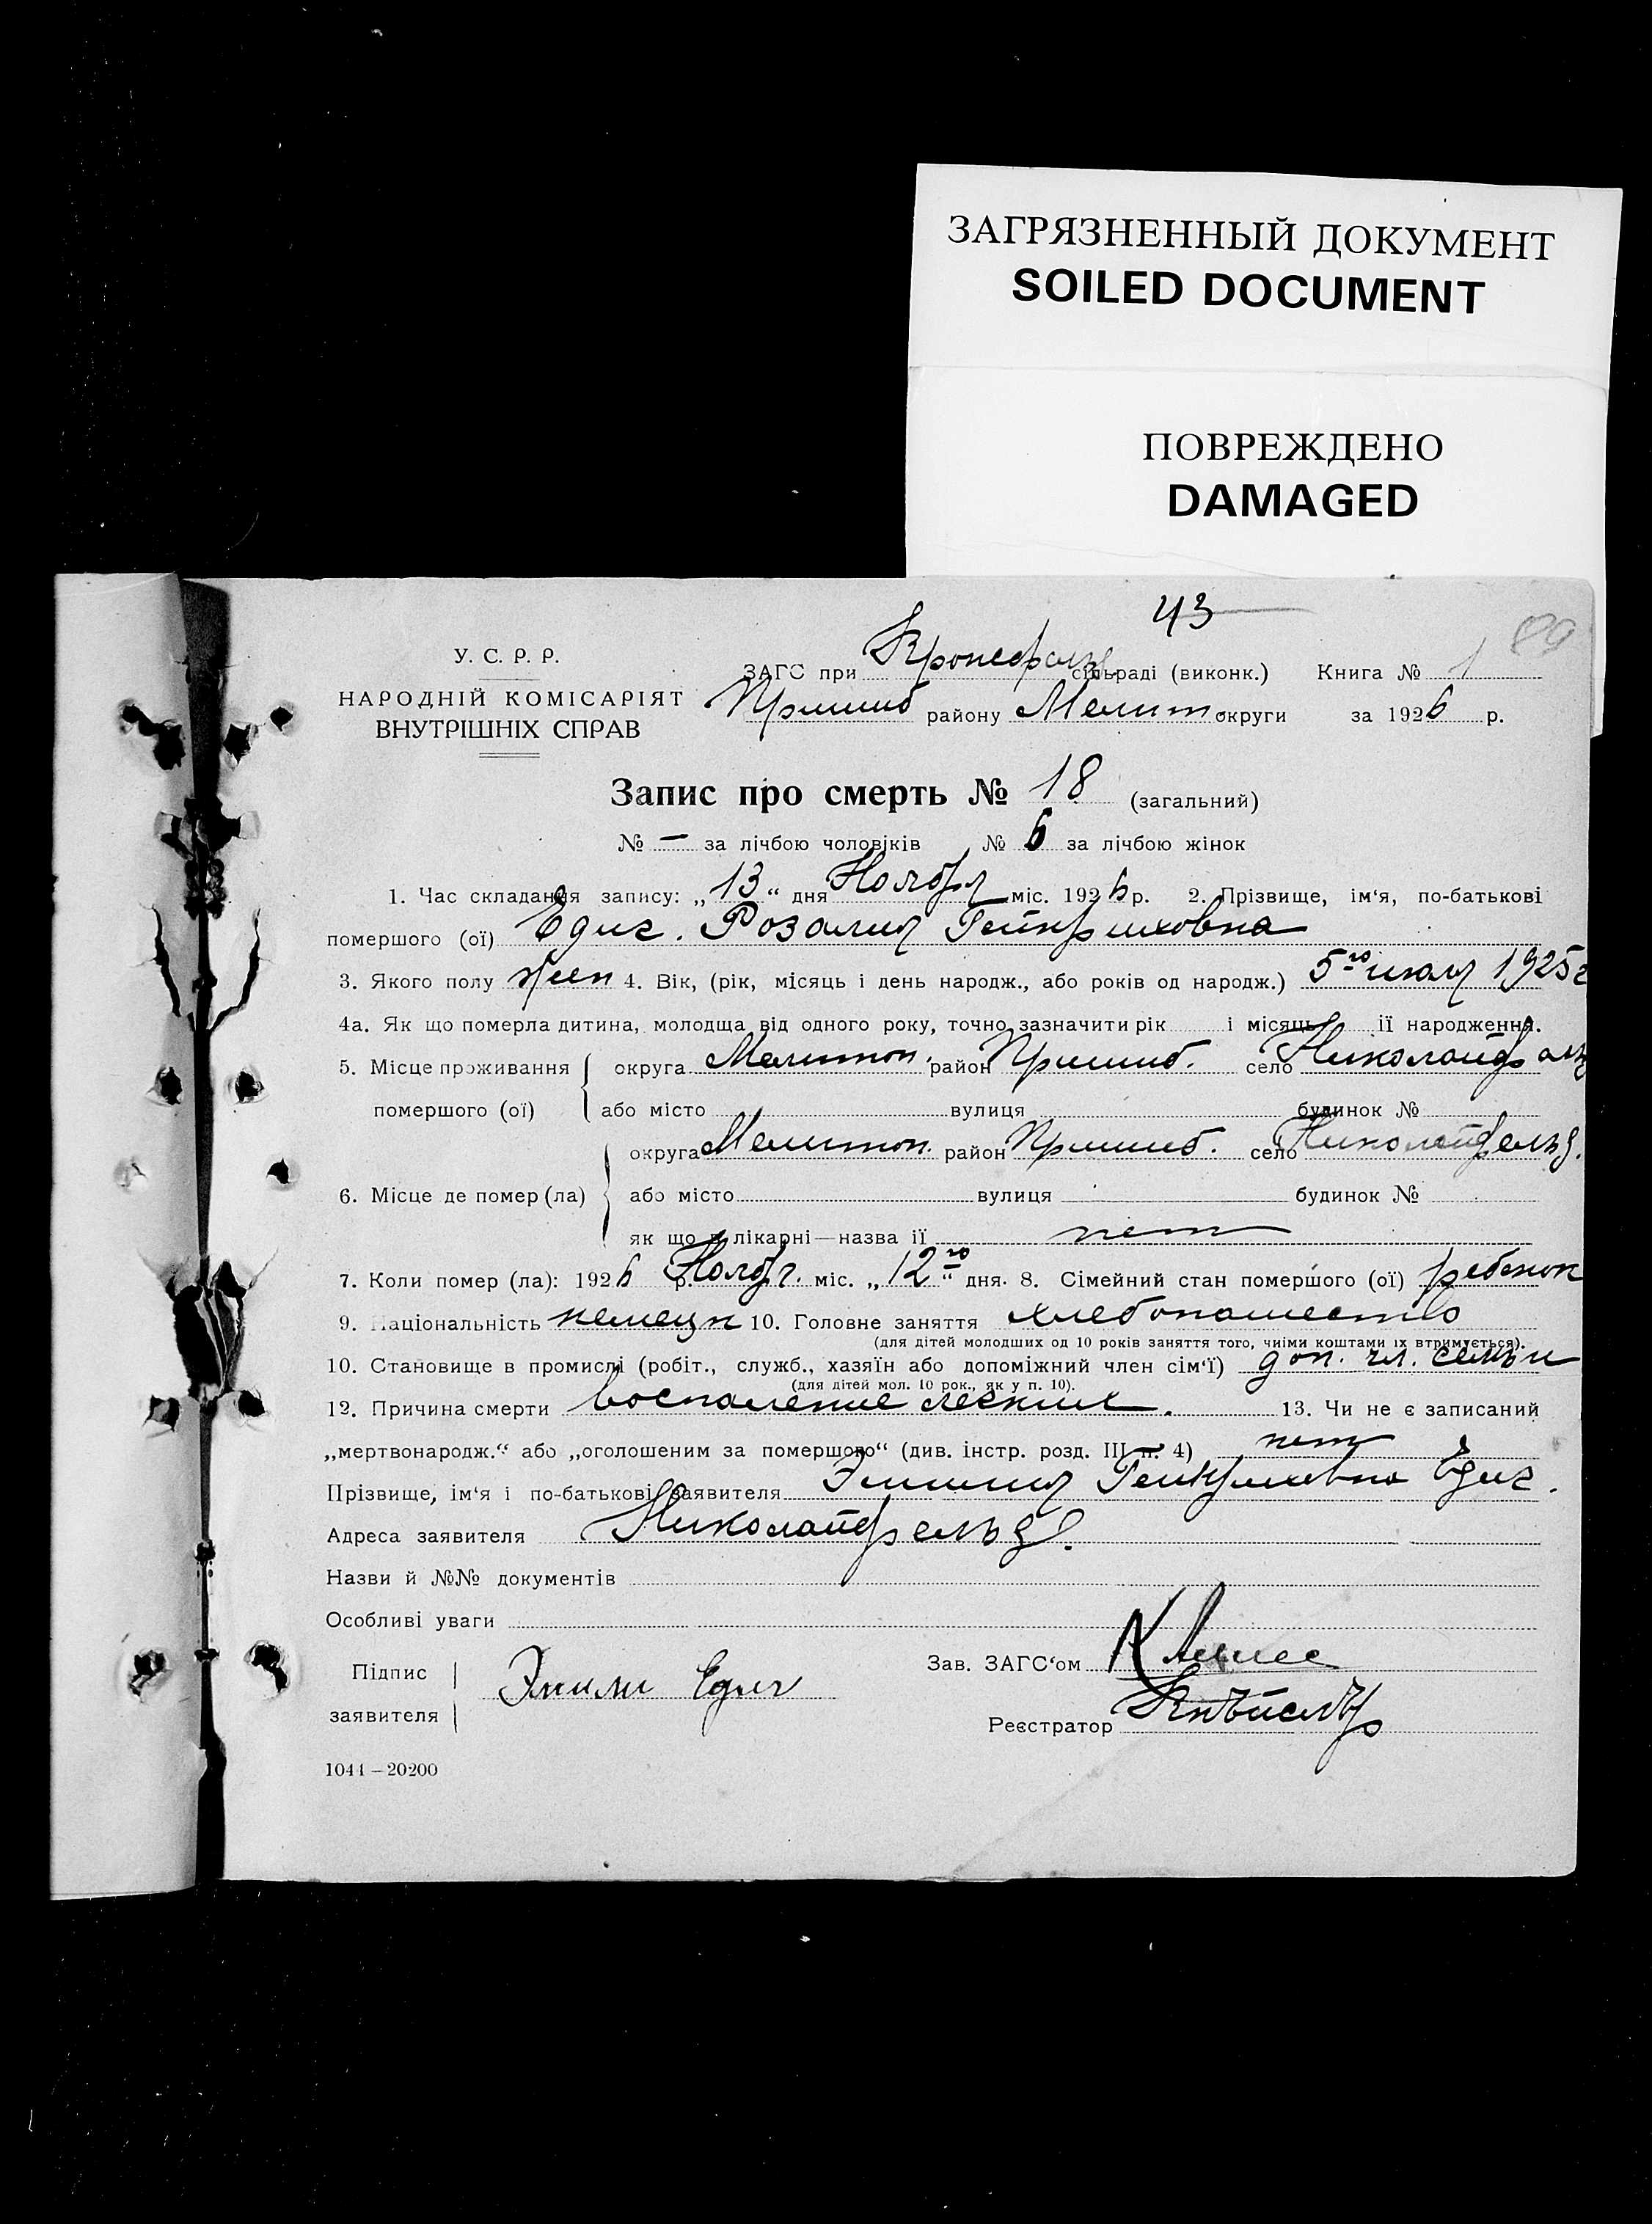 ЗАГРЯЗНЕННЫЙ ДОКУМЕНТ
SOILED DOCUMENT
ПОВРЕЖДЕНО
DAMAGED
43
89
У. С. Р. Р.
НАРОДНІЙ КОМІСАРІЯТ
ВНУТРІШНІХ СПРАВ
ЗАГС при Кронсфельд сільраді (виконк.) Книга № 1
Пришиб району Мелит округи за 1926 р.
Запис про смерть № 18 (загальний)
№ — за лічбою чоловіків № 6 за лічбою жінок
1. Час складання запису: „13“ дня Ноября міс. 1926 р. 2. Прізвище, ім‘я, по-батькові
помершого (ої) Едиг. Розалия Гейнриховна
3. Якого полу жен 4. Вік, (рік, місяць і день народж., або років од народж.) 5го июля 1925г
4а. Як що померла дитина, молодща від одного року, точно зазначити рік і місяць її народження.
5. Місце проживання округа Мелитоп. район Пришиб. село Николайфельд
помершого (ої) або місто вулиця будинок №
округа Мелитоп. район Пришиб. село Николайфельд.
6. Місце де помер (ла) або місто вулиця будинок №
як що в лікарні—назва її нет
7. Коли помер (ла): 1926 р. Ноябр. міс. „12го“ дня. 8. Сімейний стан помершого (ої) ребенок
9. Національність немецк 10. Головне заняття хлебопашество
(для дітей молодших од 10 років заняття того, чиїми коштами їх втримується).
10. Становище в промислі (робіт., служб., хазяїн або допоміжний член сім‘ї) доп. чл. семьи
(для дітей мол. 10 рок., як у п. 10).
12. Причина смерти воспаление легких. 13. Чи не є записаний
„мертвонародж.“ або „оголошеним за помершого“ (див. інстр. розд. III п. 4) нет
Прізвище, ім‘я і по-батькові заявителя Эмилия Гейнриховна Едиг.
Адреса заявителя Николайфельд.
Назви й №№ документів
Особливі уваги
Підпис заявителя Эмили Едиг
Зав. ЗАГС‘ом
Реєстратор
1044—20200